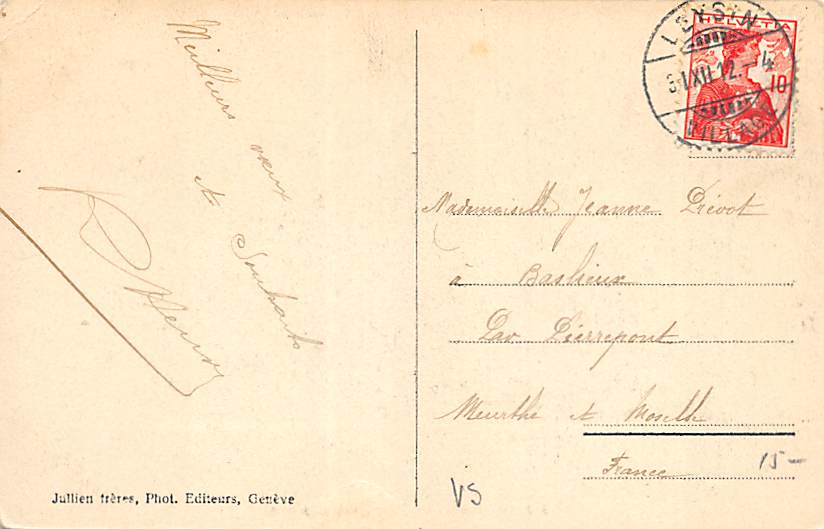 Meilleurs vœux
et
Souhaits
LEYSIN
HELVETIA
31.XII.12.–4
10
VILLAGE
Mademoiselle Jeanne Prévot
à Baslieux
Par Pierrepont
Meurthe et Moselle
France
15–
VS
Jullien frères, Phot. Editeurs, Genève